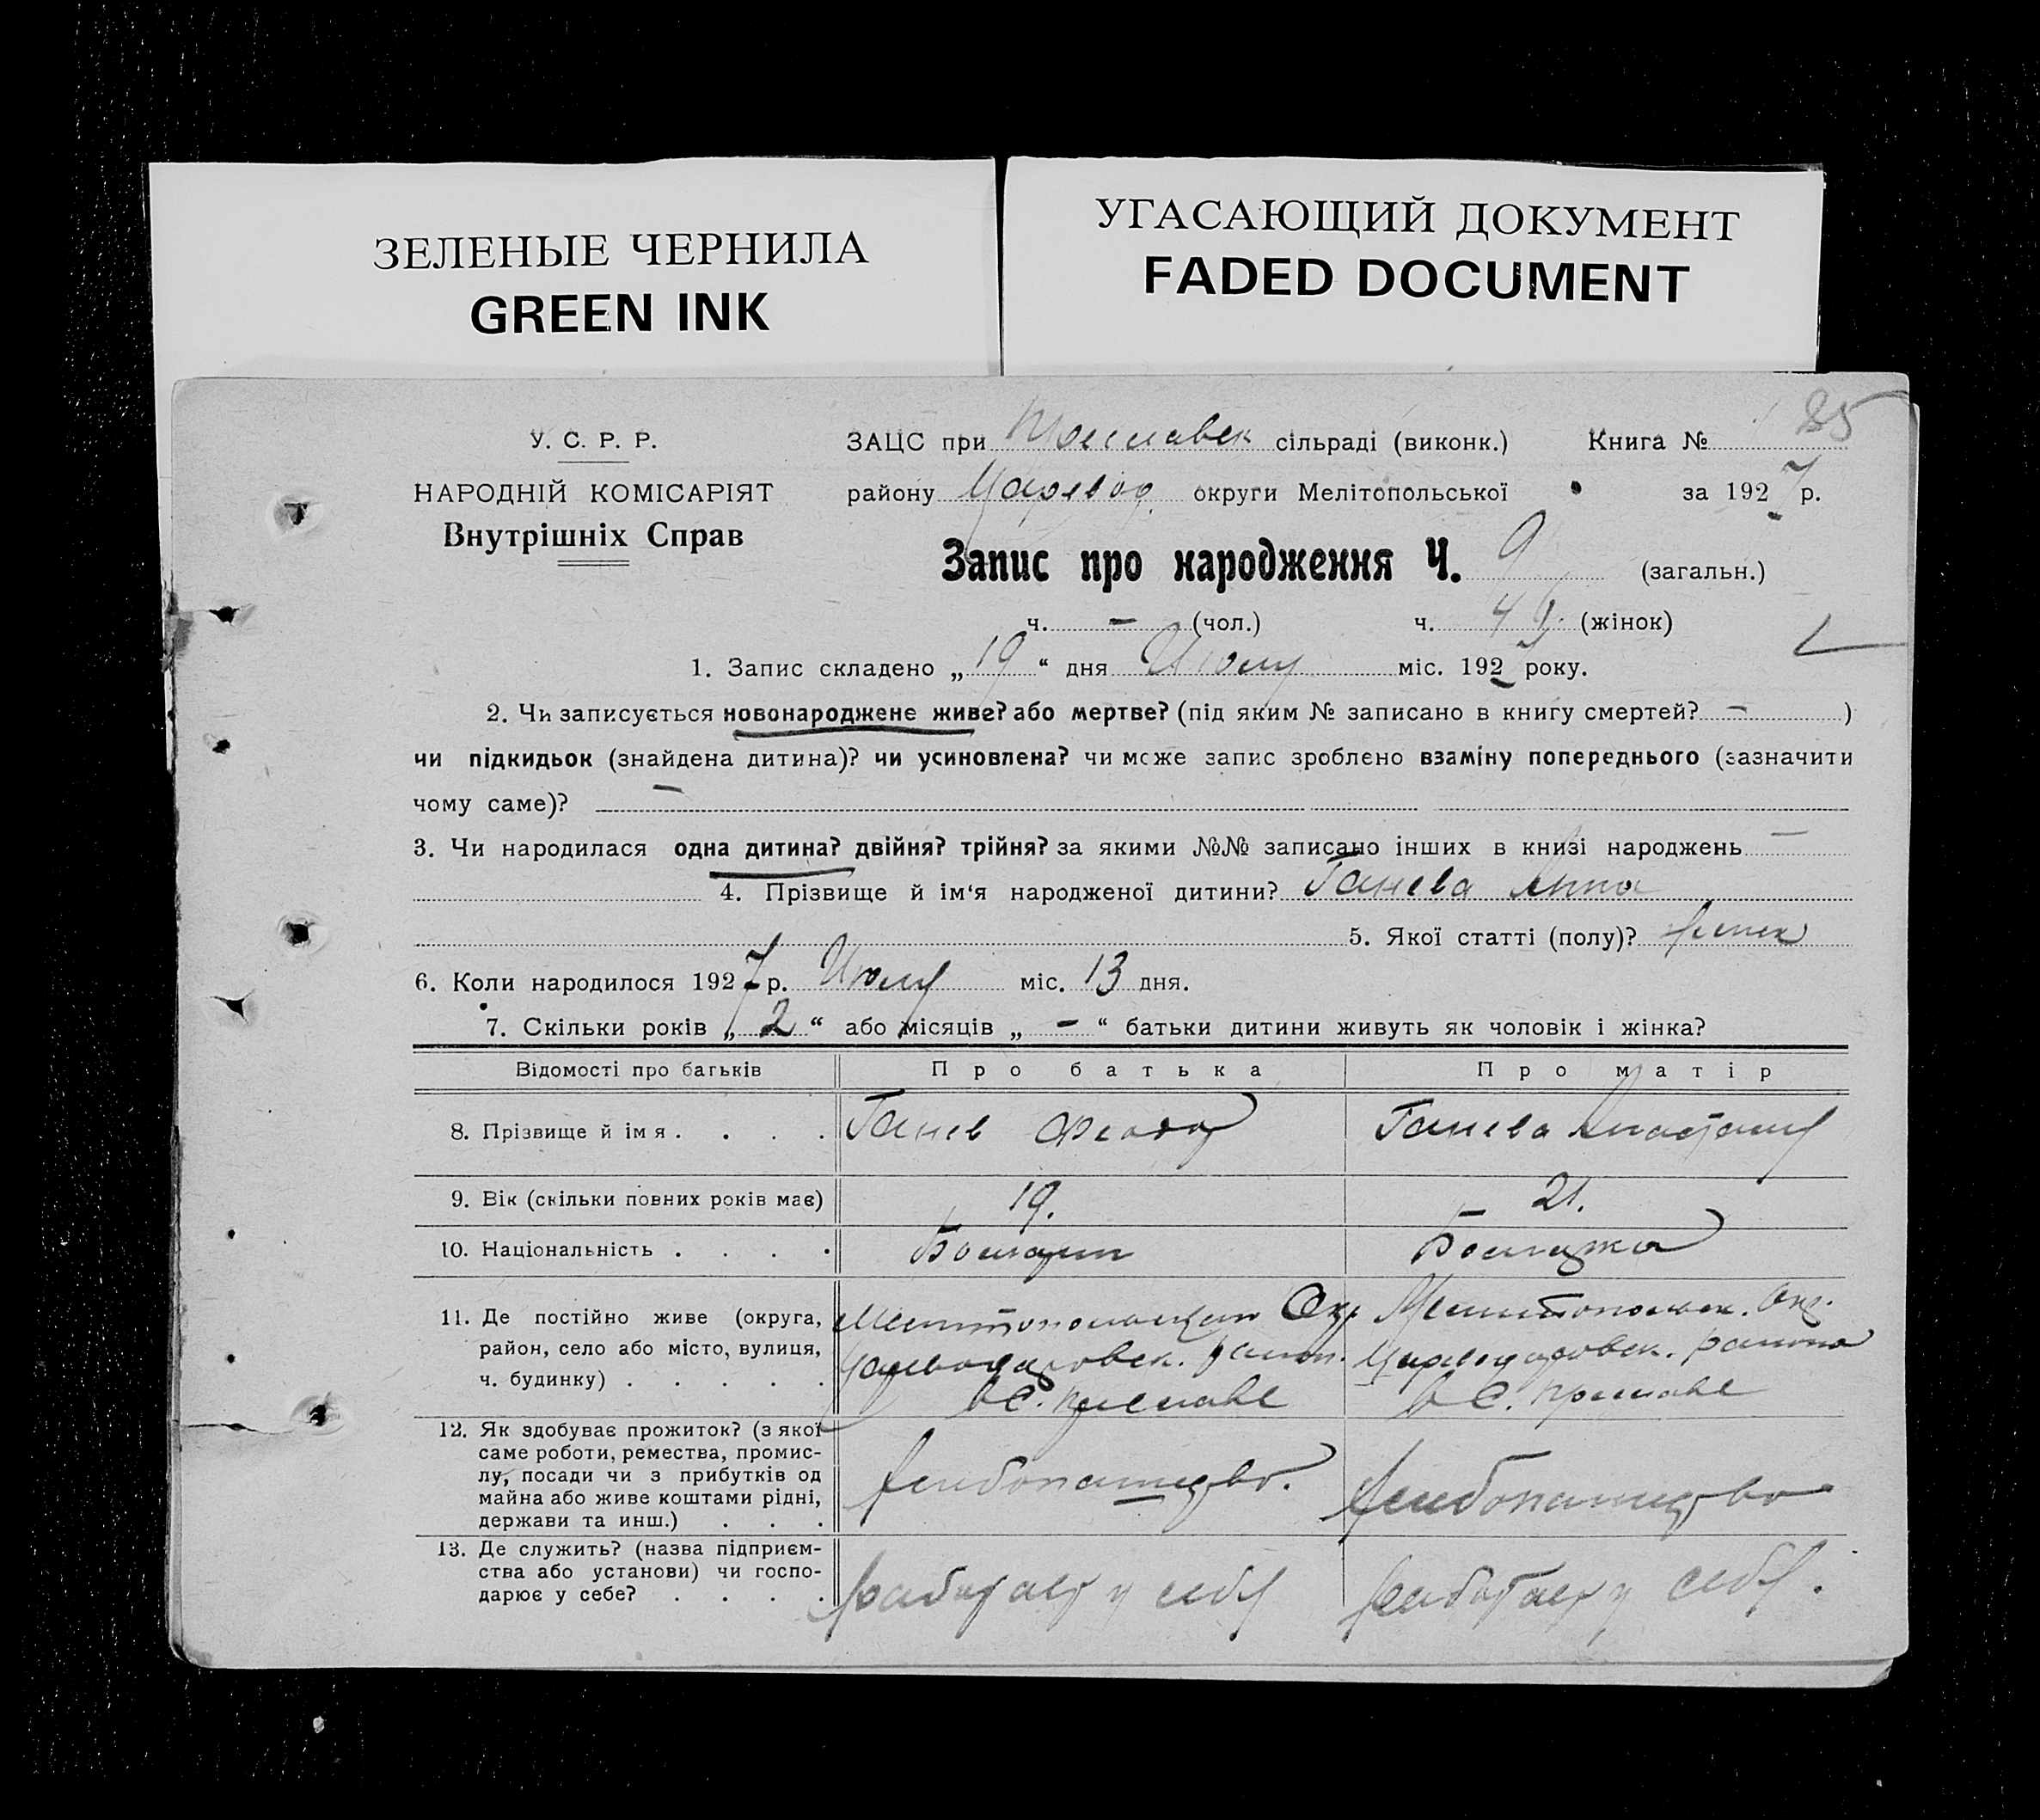 ЗЕЛЕНЫЕ ЧЕРНИЛА
GREEN INK
УГАСАЮЩИЙ ДОКУМЕНТ
FADED DOCUMENT
У. С. Р. Р.
НАРОДНІЙ КОМІСАРІЯТ
Внутрішніх Справ
ЗАЦС при сільраді (виконк.) Книга № 25
району Царевод. округи Мелітопольської за 1927 р.
Запис про народження Ч. 9 (загальн.)
ч. – (чол.) ч. (жінок)
1. Запис складено „19“ дня Июля міс. 1927 року.
2. Чи записується новонароджене живе? або мертве? (під яким № записано в книгу смертей? – )
чи підкидьок (знайдена дитина)? чи усиновлена? чи може запис зроблено взаміну попереднього (зазначити
чому саме)? –
3. Чи народилася одна дитина? двійня? трійня? за якими №№ записано інших в книзі народжень –
4. Прізвище й ім‘я народженої дитини? Ганева Анна
5. Якої статті (полу)? женск
6. Коли народилося 1927 р. Июля міс. 13 дня.
7. Скільки років „2“ або місяців „–“ батьки дитини живуть як чоловік і жінка?
Відомості про батьків Про батька Про матір
8. Прізвище й імя . . . . Ганев Федор Ганева Анастасия
9. Вік (скільки повних років має) 19. 21.
10. Національність . . . . Болгарин Болгарка
11. Де постійно живе (округа, Мелитопольский Окр Мелитопольск. Окр.
район, село або місто, вулиця, Цареводаровск. район. Цареводаровск. района
ч. будинку) . . . . . в С. Преславе в С. Преславе
12. Як здобуває прожиток? (з якої
саме роботи, ремества, промис-
лу, посади чи з прибутків од хлебопашество. хлебопашество
майна або живе коштами рідні,
держави та инш.) . . .
13. Де служить? (назва підприєм-
ства або установи) чи госпо- работает у себя работает у себя.
дарює у себе? . . . .